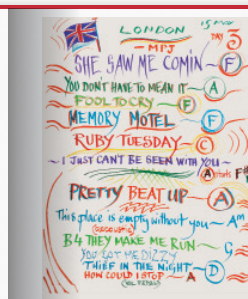 15 MAY
LONDON
DAY 3
- MPJ
SHE SAW ME COMIN - F
YOU DON'T HAVE TO MEAN IT - A
FOOL TO CRY - F
MEMORY MOTEL F
RUBY TUESDAY - C
~ I JUST CAN'T BE SEEN WITH YOU ~
A starts F#
PRETTY BEAT UP - A
This place is empty without you ~ Am
(acoustic)
B4 THEY MAKE ME RUN ~ G
YOU GOT ME DIZZY
THIEF IN THE NIGHT - D
HOW COULD I STOP - A